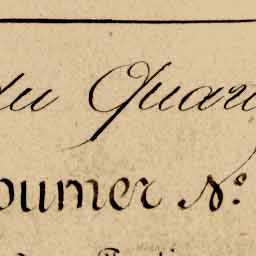 du Quar
oumer N°